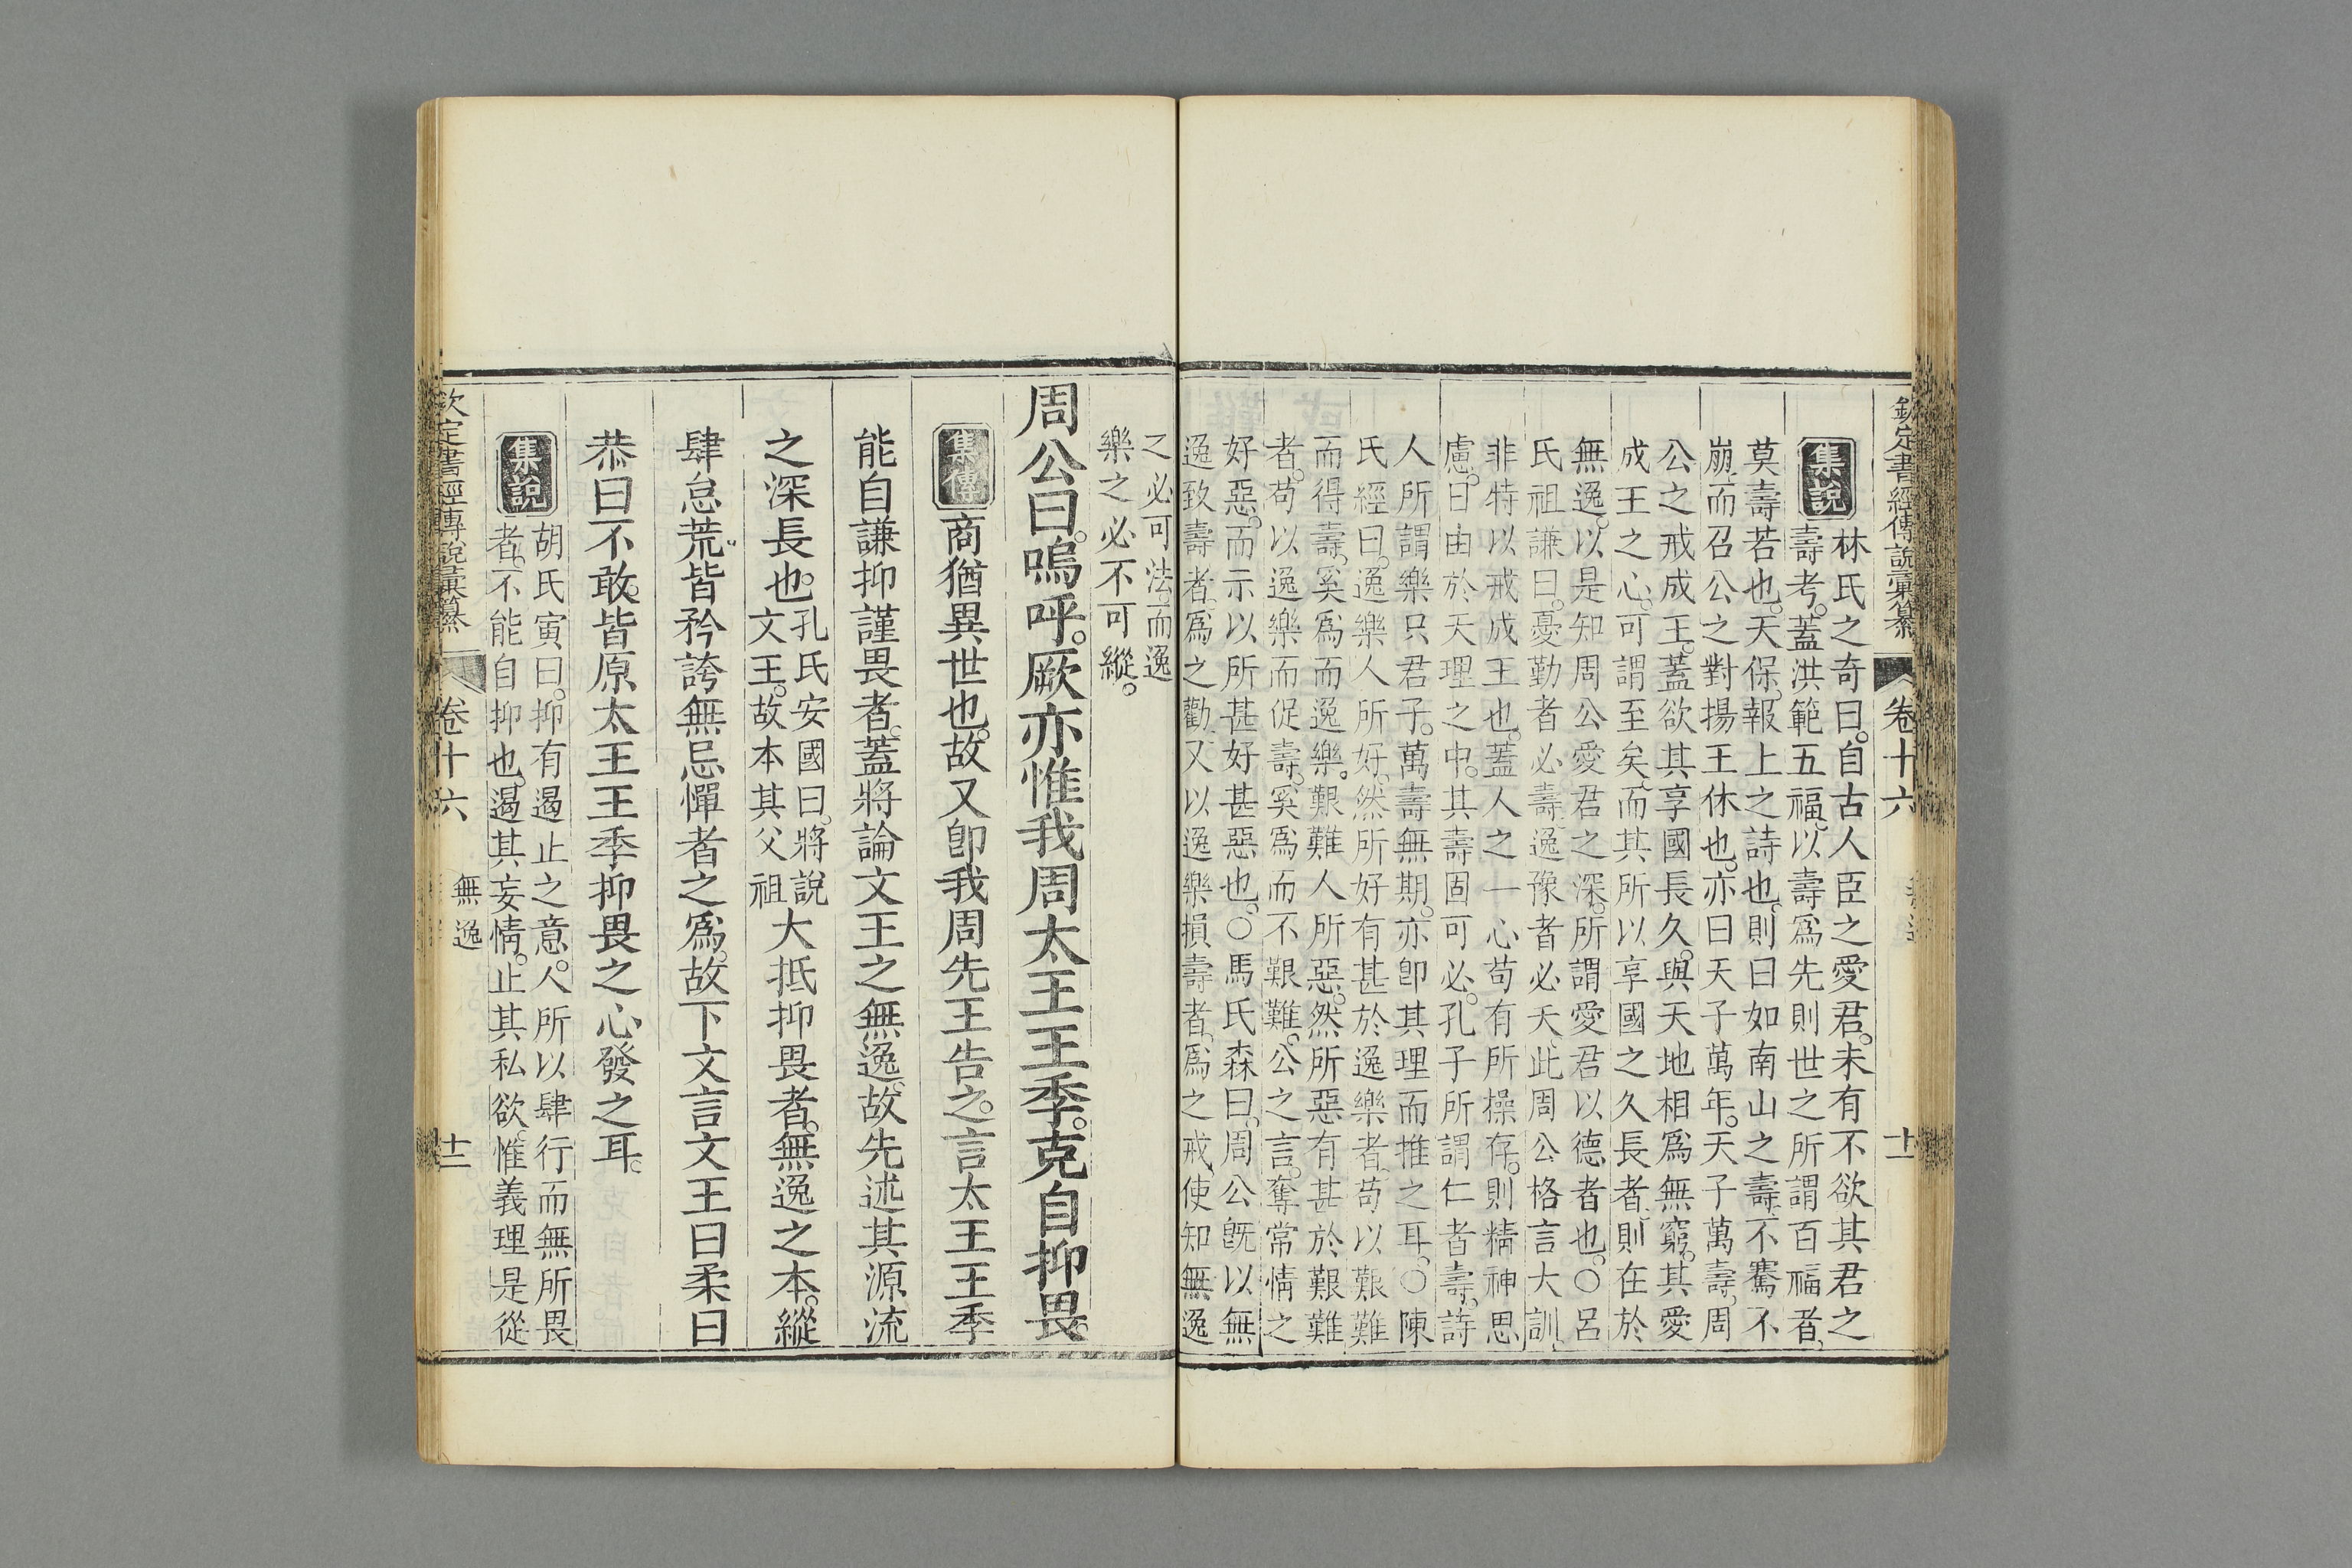 欽定書經傳說彙纂 卷十六 無逸 十二
集說
林氏之奇曰。自古人臣之愛君。未有不欲其君之
壽考。蓋洪範五福。以壽爲先。則世之所謂百福者。
莫壽若也。天保。報上之詩也。則曰如南山之壽。不騫不
崩。而召公之對揚王休也。亦曰天子萬年。天子萬壽。周
公之戒成王。蓋欲其享國長久。與天地相爲無窮。其愛
成王之心。可謂至矣。而其所以享國之久長者。則在於
無逸。以是知周公愛君之深。所謂愛君以德者也。〇呂
氏祖謙曰。憂勤者必壽。逸豫者必夭。此周公格言大訓。
非特以戒成王也。蓋人之一心。苟有所操存。則精神思
慮。日由於天理之中。其壽固可必。孔子所謂仁者壽。詩
人所謂樂只君子。萬壽無期。亦卽其理而推之耳。〇陳
氏經曰。逸樂人所好。然所好有甚於逸樂者。苟以艱難
而得壽。奚爲而逸樂。艱難人所惡。然所惡有甚於艱難
者。苟以逸樂而促壽。奚爲而不艱難。公之言。奪常情之
好惡。而示以所甚好甚惡也。〇馬氏森曰。周公旣以無
逸致壽者。爲之勸。又以逸樂損壽者。爲之戒。使知無逸
之必可法。而逸
樂之必不可縱。
周公曰。嗚呼。厥亦惟我周太王王季。克自抑畏。
集傳
商猶異世也。故又卽我周先王告之。言太王王季
能自謙抑謹畏者。蓋將論文王之無逸。故先述其源流
之深長也。孔氏安國曰。將說
文王。故本其父祖
大抵抑畏者。無逸之本。縱
肆怠荒。皆矜誇無忌憚者之爲。故下文言文王曰柔曰
恭曰不敢。皆原太王王季抑畏之心發之耳。
集說
胡氏寅曰。抑有遏止之意。人所以肆行而無所畏
者。不能自抑也。遏其妄情。止其私欲。惟義理是從
欽定書經傳說彙纂 卷十六 無逸 十三